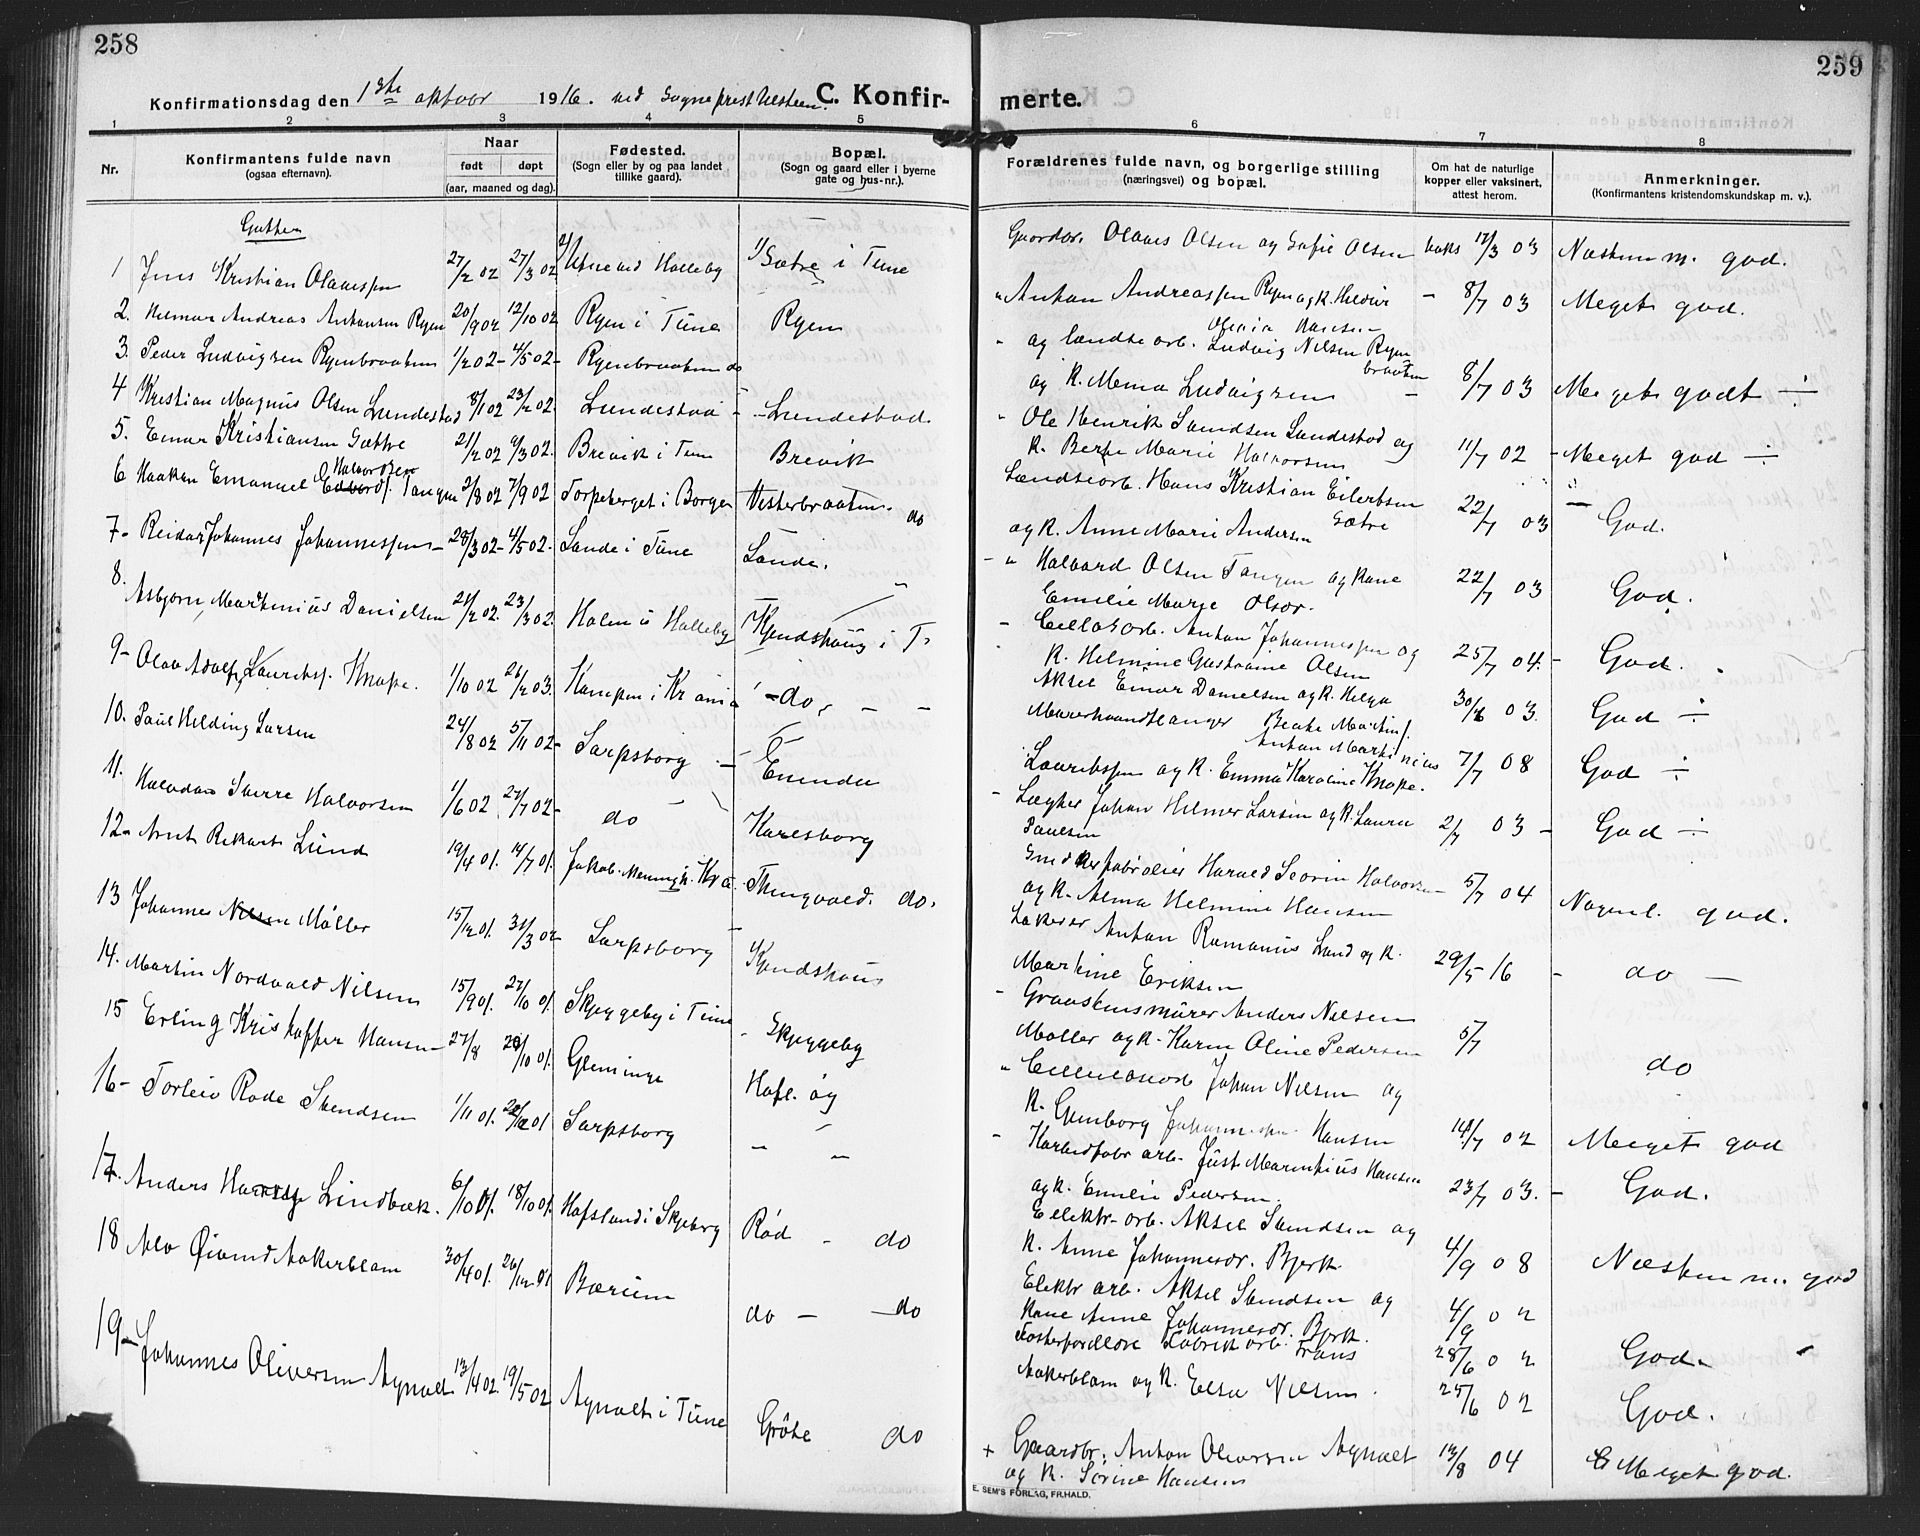 258
Konfirmationsdag den 1ste oktobr 1916. ved Sogneprest C. Konfir-
1 2 3 4 5
Nr. Konfirmantens fulde navn (ogsaa efternavn). Naar født døpt (aar, maaned og dag). Fødested. (Sogn eller by og paa landet tillike gaard). Bopæl. (Sogn og gaard eller i byerne gate og hus-nr.).
Gutter
1 Jens Kristian Olavessen 27/2 02 27/3 02 Halleby Sætre i Tune
2. Hilmar Andreas Antonsen Ryen 20/9 02 12/10 02 Ryen i Tune Ryen
3. Peder Ludvigsen Ryenbraaten 1/2 02 - 4/5 02 - Ryenbraaten do
4 Kristian Magnus Olsen Lundestad 8/1 02 23/2 02. Lundestad - Lundestad.
5. Einar Kristiansen Sætre 21/2 02 9/3 02. Brevik i Tune Brevik
6 Haakon Emanuel Halvordsen Edvards. Tangen 2/8 02 7/9 02 Torpeberget i Borge Vesterbraaten. do
7- Reidar Johannes Johannessen - 28/3 02 - 4/5 02. Sande i Tune Sande.
8. Asbjørn Martinius Danielsen 21/2 02. 23/3 02. Holm i Halleby Kjendshaug i T-
9- Olav Adolf Lauritss. Knape. 1/10 02 26/2 03. Kampen i Kr ania - do, - -
10. Paul Helding Larsen 24/8 02 5/11 02 - Sarpsborg - Enenda
11. Halvdan Sverre Halvorsen 1/6 02. 27/7 02 - do Karlsborg
12- Arnt Rikart Lund 19/4 01. 14/7 01. Jakob. Menigh. Kr a. Thingvold. do.
13 Johannes Nilsen Møller 15/12 01. 31/3 02 Sarpsborg Kjendshaug
14. Martin Nordvald Nilsen 15/9 01. 27/10 01. Skjeggeby i Tune - Skjeggeby
15 Erling Kristoffer Hansen 27/8 20/10 01. Glemminge Hafl. og
16- Torleiv Rode Svendsen 1/11 01. 01 Sarpsborg - -
17. Anders Lindbæk. 6/10 01. 18/10 01. Hafslund i Skjeberg Rød - do
18 Alv Øivind Aakerblom 30/4 01. 26/12 01 Bærum do - - do
19- Johannes Oliversen Agnalt 13/4 02. 19/5 02 Agnalt i Tune Grøte do
259
merte.
6 7 8
Forældrenes fulde navn, og borgerlige stilling (næringsvei) og bopæl. Om hat de naturlige kopper eller vaksinert, attest herom. Anmerkninger. (Konfirmantens kristendomskundskap m. v.).
Gaardbr. Olaves Olsen og Sofie Olsen vaks 12/3 03 Næsten m. god.
" Anton Andreassen Ryen og K. - 8/7 03 Meget god.
Hansen
- og landsarb. Ludvig Nilsen Ryen
braaten
og K. Mina Ludvigsen - 8/7 03 Meget godt ÷
- Ole Henrik Svendsen Lundestad og
K. Berte Marie Halvorsen 11/7 02 - Meget god ÷
Landsarb. Hans Kristian Eilertsen
Sætre
og K. Anne Marie Andersen 22/7 03 God.
- " Halvard Olsen Tangen og Kone
Emilie Marie Olsdr. 22/7 03 God.
- Cellosarb. Anton Johannessen og
K. Helmine Gustavine Olsen 25/7 04. - God.
Aksel Einar Danielsen og K. Helga
Murerhaandlanger Beate Martins. 30/6 03. God ÷
Anton Martinius
Lauritssen og K. Emma Karoline Knape. 7/7 08 God ÷
- Johan Hilmer Larsen og K. Laura
Paulsen 2/7 03 - God ÷
Harald Severin Halvorsen
og K. Alma Helmine Hansen 5/7 04 Nogenl. god.
Anton Romanus Lund og K.
Martine Eriksen 29/5 16 - do -
- Graastensmurer Anders Nilsen
Møller og K. Karen Oline Pedersen 5/7 do
" Johan Nilsen og
K. Gunborg Johannesen Hansen 14/7 02 Meget god
- Karbidfabr arb. Just Marentius Hansen
og K. Emilie Pedersen. 23/7 03. - God.
Elektr-arb. Aksel Svendsen og
K. Anne Johannesdr. Bjerk 4/9 08 Næsten m. god
Elektr arb. Aksel Svendsen og
Kone Anne Johannesdr. Bjerk. 4/9 02
Fosterforældre Fabrikarb. Frans 28/6 02 God.
Aakerblom og K. Elsa Nilsen. 25/6 02 God.
+ Gaardbr. Anton Oliversen Agnalt 13/8 04 Meget god.
og K. Sørine Hansen
E. SEM'S FORLAG, FR.HALD.